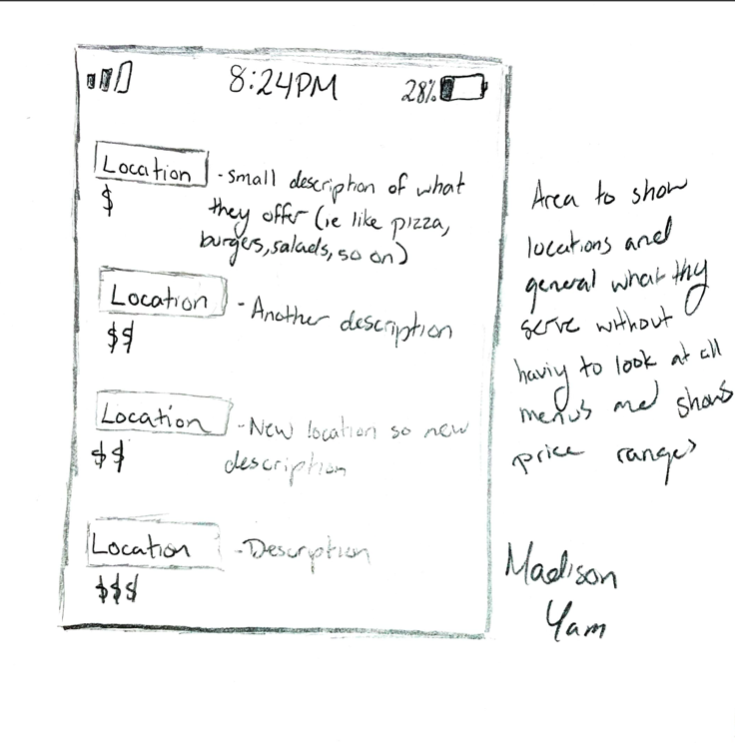 8:24PM 28%
Location - Small description of what
they offer (ie like pizza,
burgers, salads, so on)
$
Location - Another description
$$
Location - New location so new
description
$$
Location - Description
$$$
Area to show
locations and
general what thy
serve without
having to look at all
menus and shows
price ranges
Madison
Yam